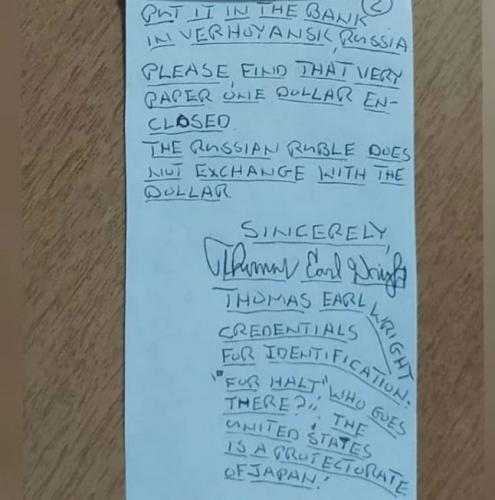 2
PUT IT IN THE BANK
IN VERHOYANSK, RUSSIA
PLEASE FIND THAT VERY
PAPER ONE DOLLAR EN-
CLOSED.
THE RUSSIAN RUBLE DOES
NOT EXCHANGE WITH THE
DOLLAR
SINCERELY,
Thomas Earl Wright
THOMAS EARL WRIGHT
CREDENTIALS
FOR IDENTIFICATION.
"FOR HALT" WHO GOES
THERE?"; THE
UNITED STATES
IS A PROTECTORATE
OF JAPAN!